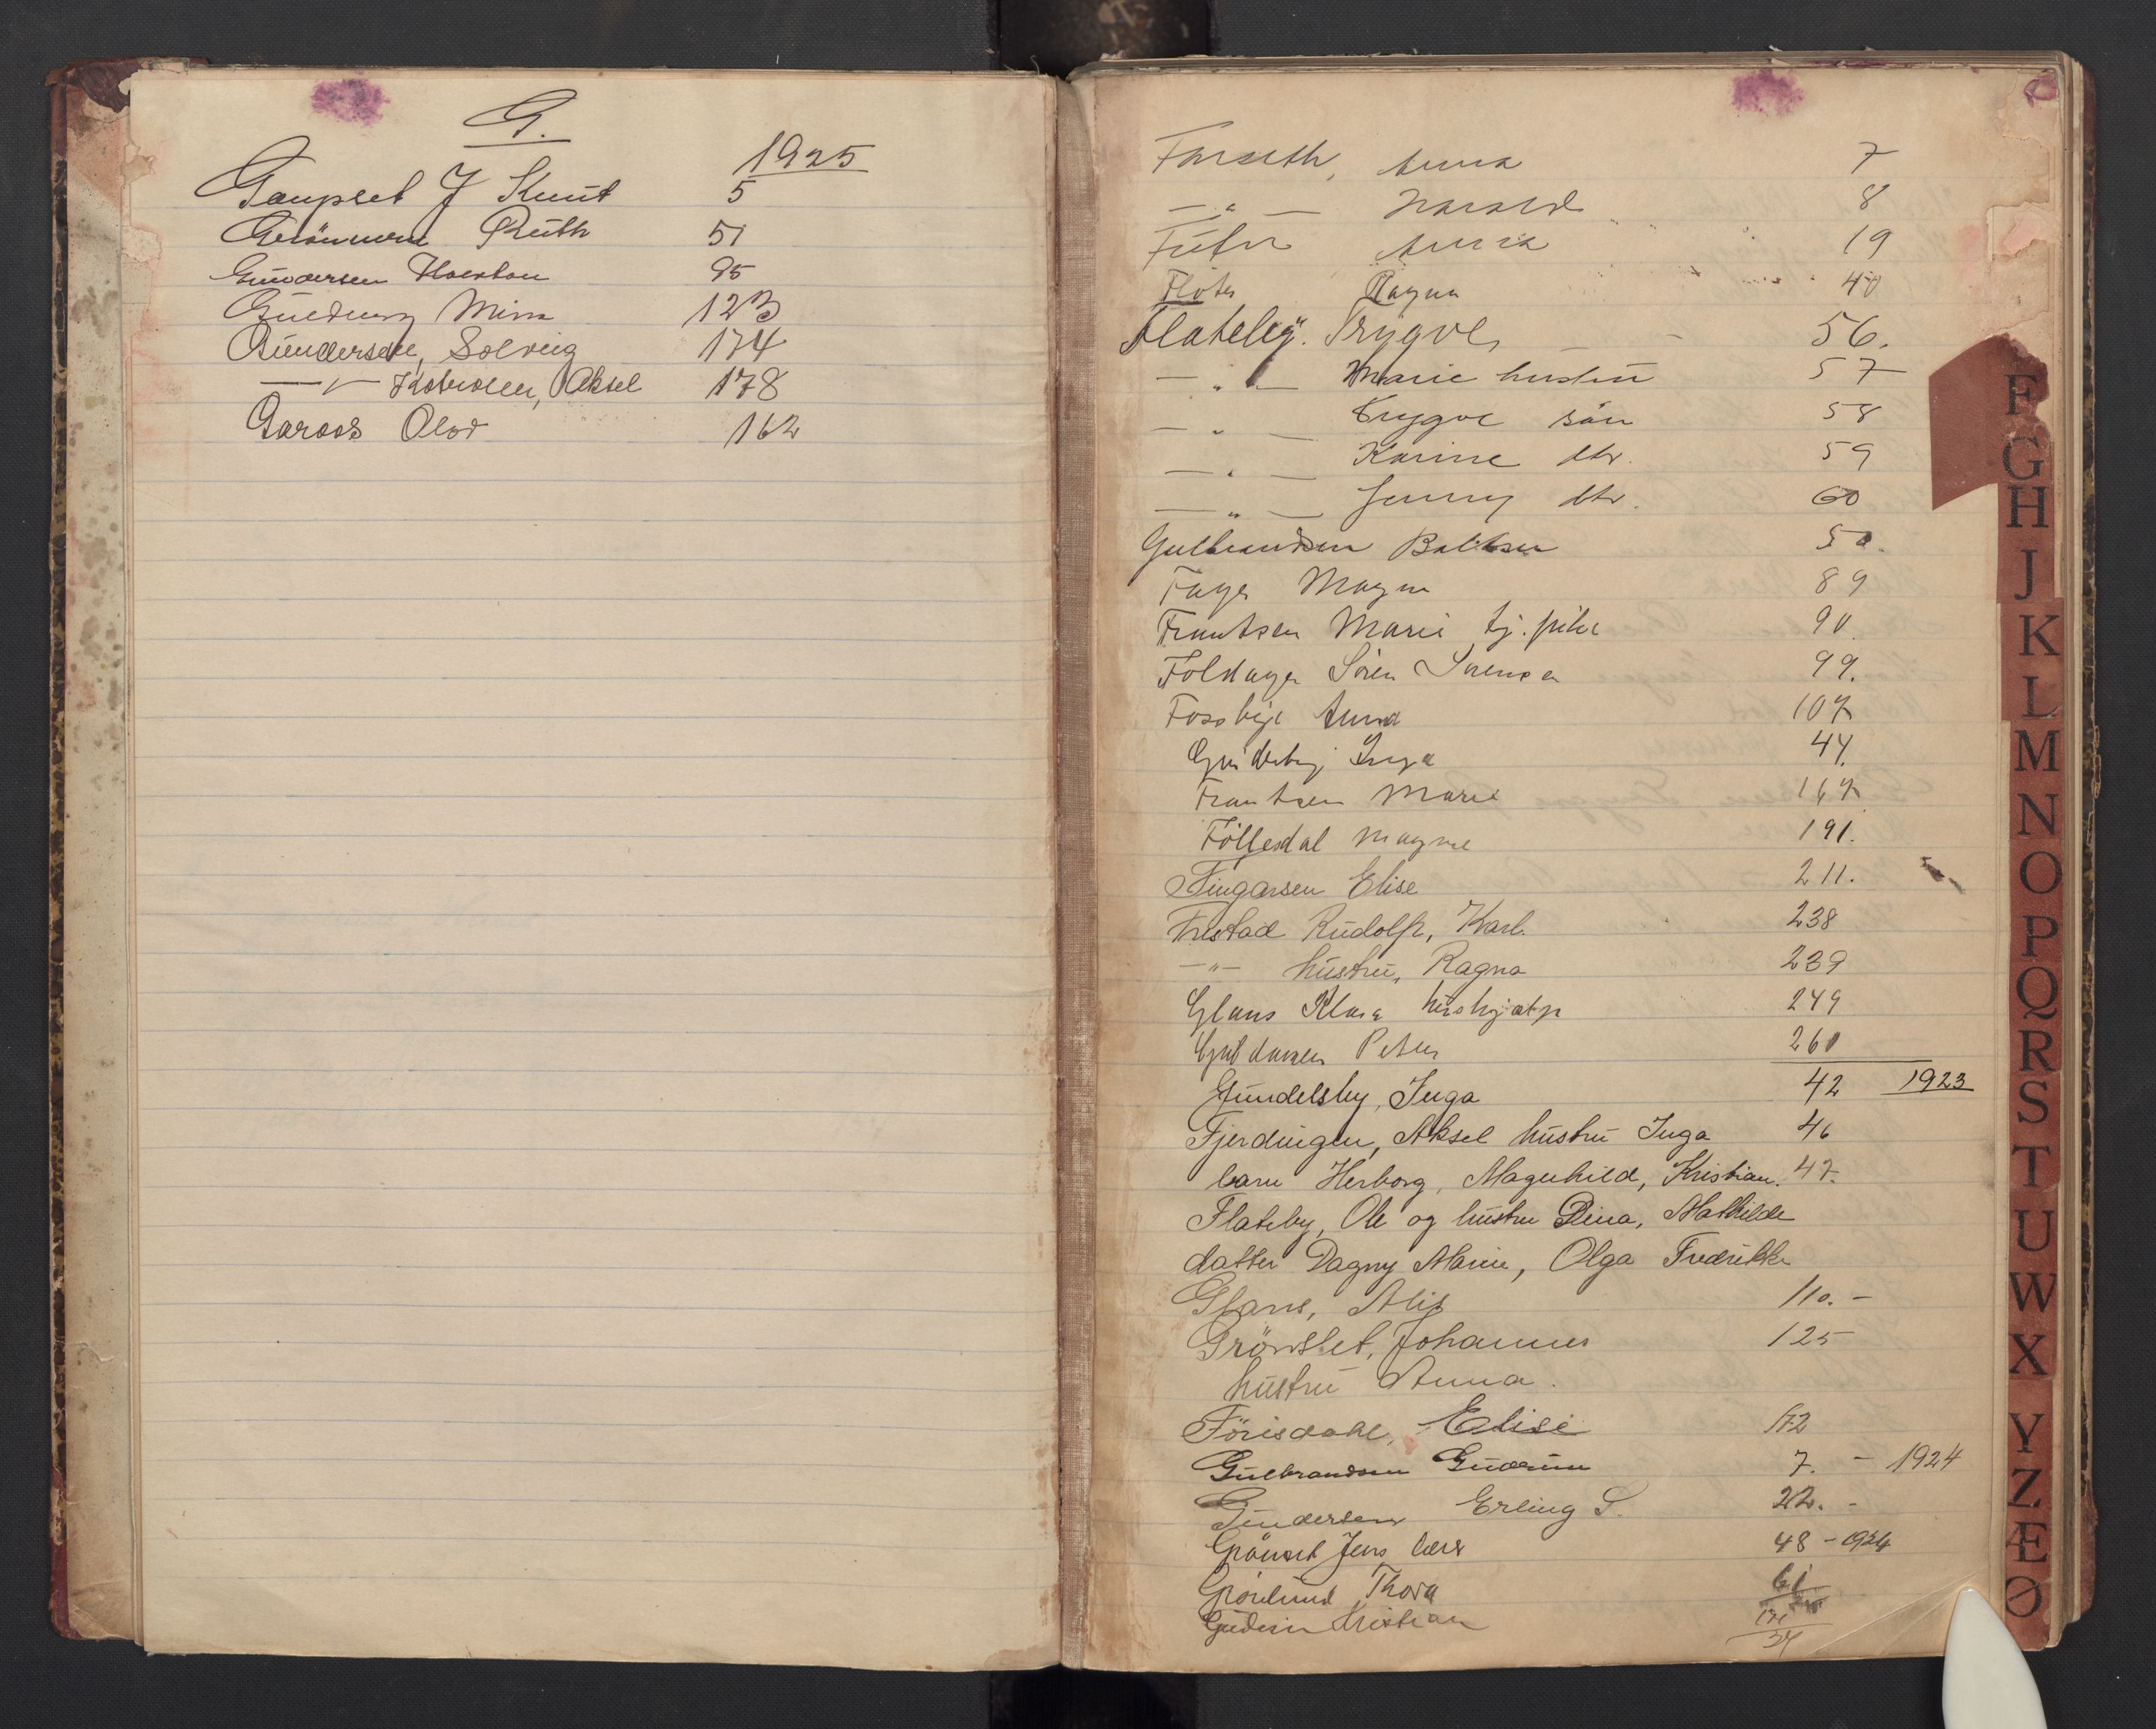 G.
1925
Gaupset J Knut 5
Grönnerud Ruth 51
Gundersen Thorston 95
Mina 123
Gundersen, Solveig 174
—〃— Aksel 178
Garaas Olav 162
Forseth, Anna 7
—〃— Harald 8
Anna 19
Ragna 40
Flateby. Trygve, 56.
—〃— Marie hustru 57
—〃— Trygve sön 58
—〃— Karine dtr. 59
—〃— Jenny dtr. 60
Gulbrandsen 50.
Magna 89
Frantsen Marie tj. pike 90.
Foldager Sören 99.
Fossbye Anna 107
Inga 44.
Frantsen Marie 167
Föllesdal Magne 191.
Fingarsen Elise 211.
Rudolf, Karl. 238
—〃— hustru, Ragna 239
Glans Klara hushjælp 249
Peter 260
Gundelsby, Inga 42 1923
Fjerdingen, Aksel hustru Inga 46
barn Herborg, Magnhild, Kristian. 47.
Flateby, Ole og hustru Dina, Mathilde
datter Dagny Marie, Olga Fredrikke
Glans, Alif 110. –
Grönslet, Johannes 125
hustru Anna.
Förisdahl, Elise 172
Gulbrandsen Gudrun 7. – 1924
Gundersen Erling S. 22. -
Grönset Jens 48 – 1924
Grönlund Thora 61
Kristian
F
G
H
J
K
L
M
N
O
P
Q
R
S
T
U
W
X
Y
Z
Æ
Ø